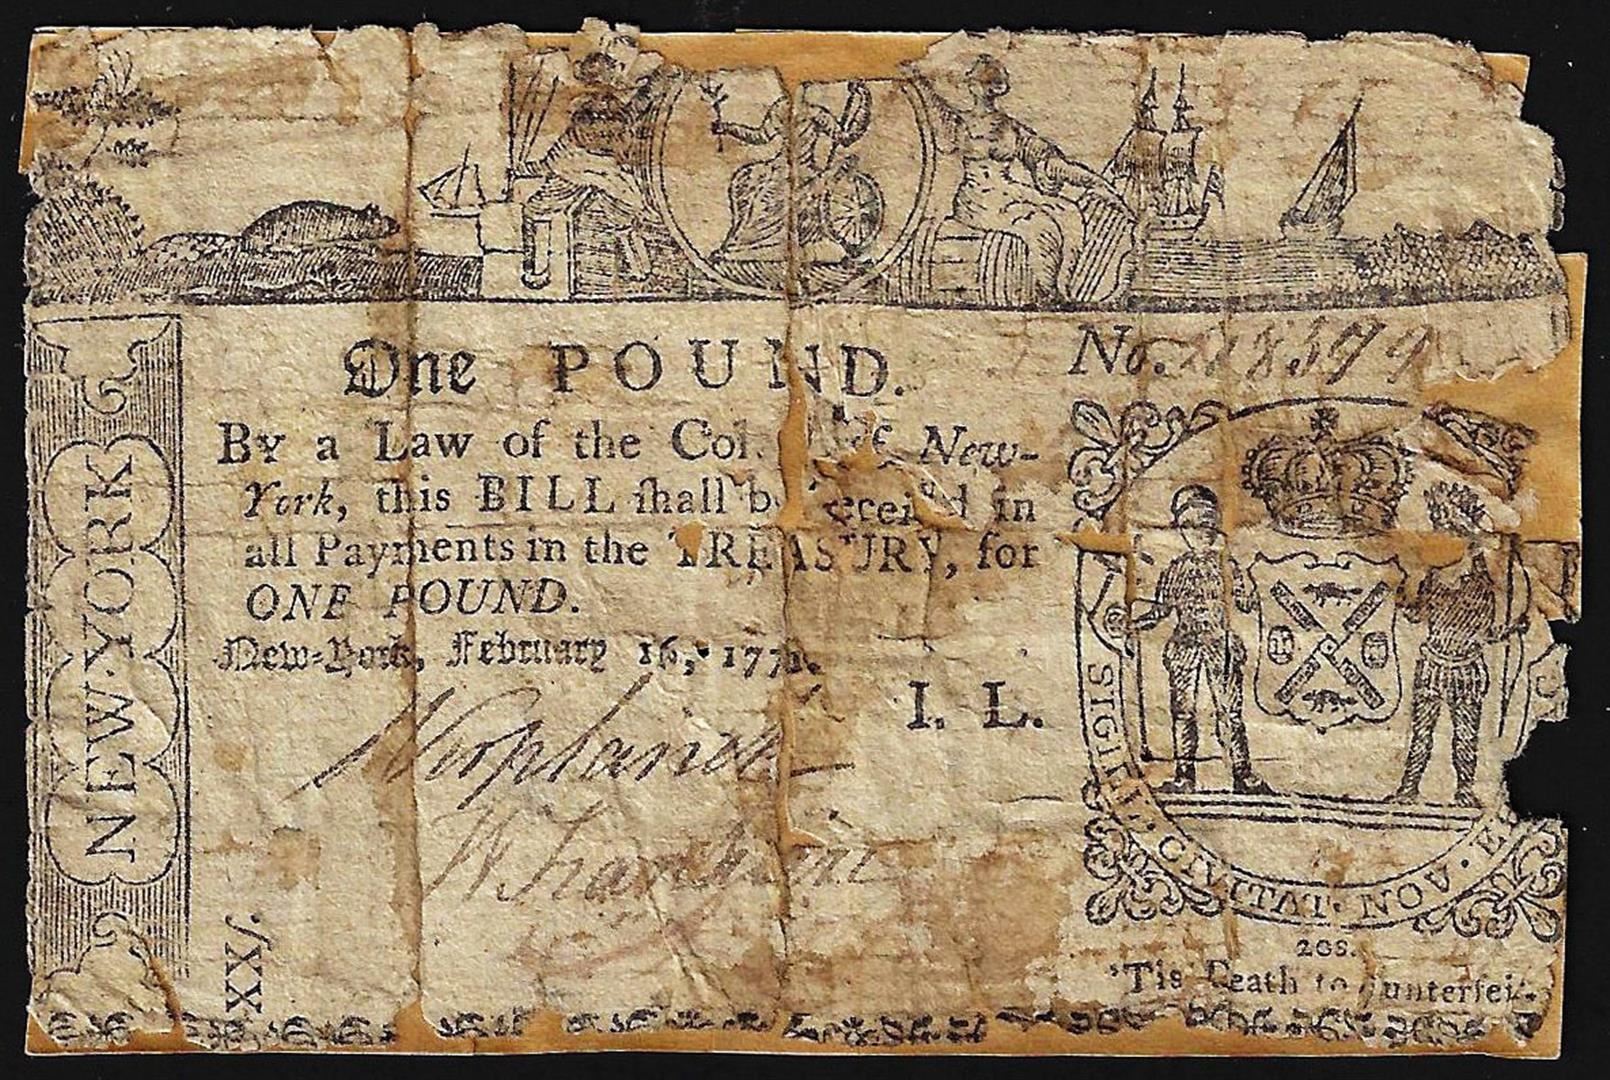 One POUND.
No. 28379
By a Law of the Col of New-
York, this BILL ſhall be received in
all Payments in the TREASURY, for
ONE POUND.
New-York, February 16, 1771.
I. L.
NEW-YORK
XX ſ.
SIGILL. CIVITAT. NOV. E
20S.
'Tis Death to unterfei